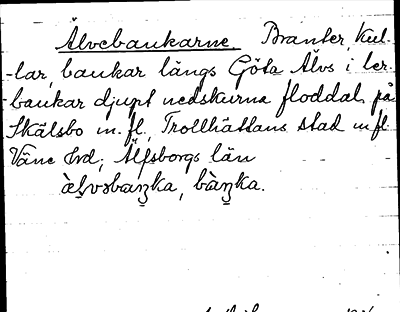 Älvebankarne. Branter, kul-
-lar, bankar längs Göta Älvs i ler-
bankar djupt nedskurna floddal på
Skälsbo m. fl., Trollhättans stad m fl
Väne hrd; Älfsborgs län
bàŋka.